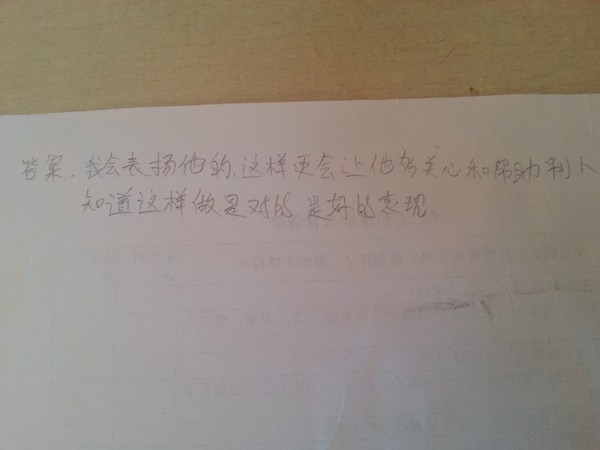 答案.我会表扬他的,这样更会让他多关心和帮助别人
知道这样做是对的 是好的表现.